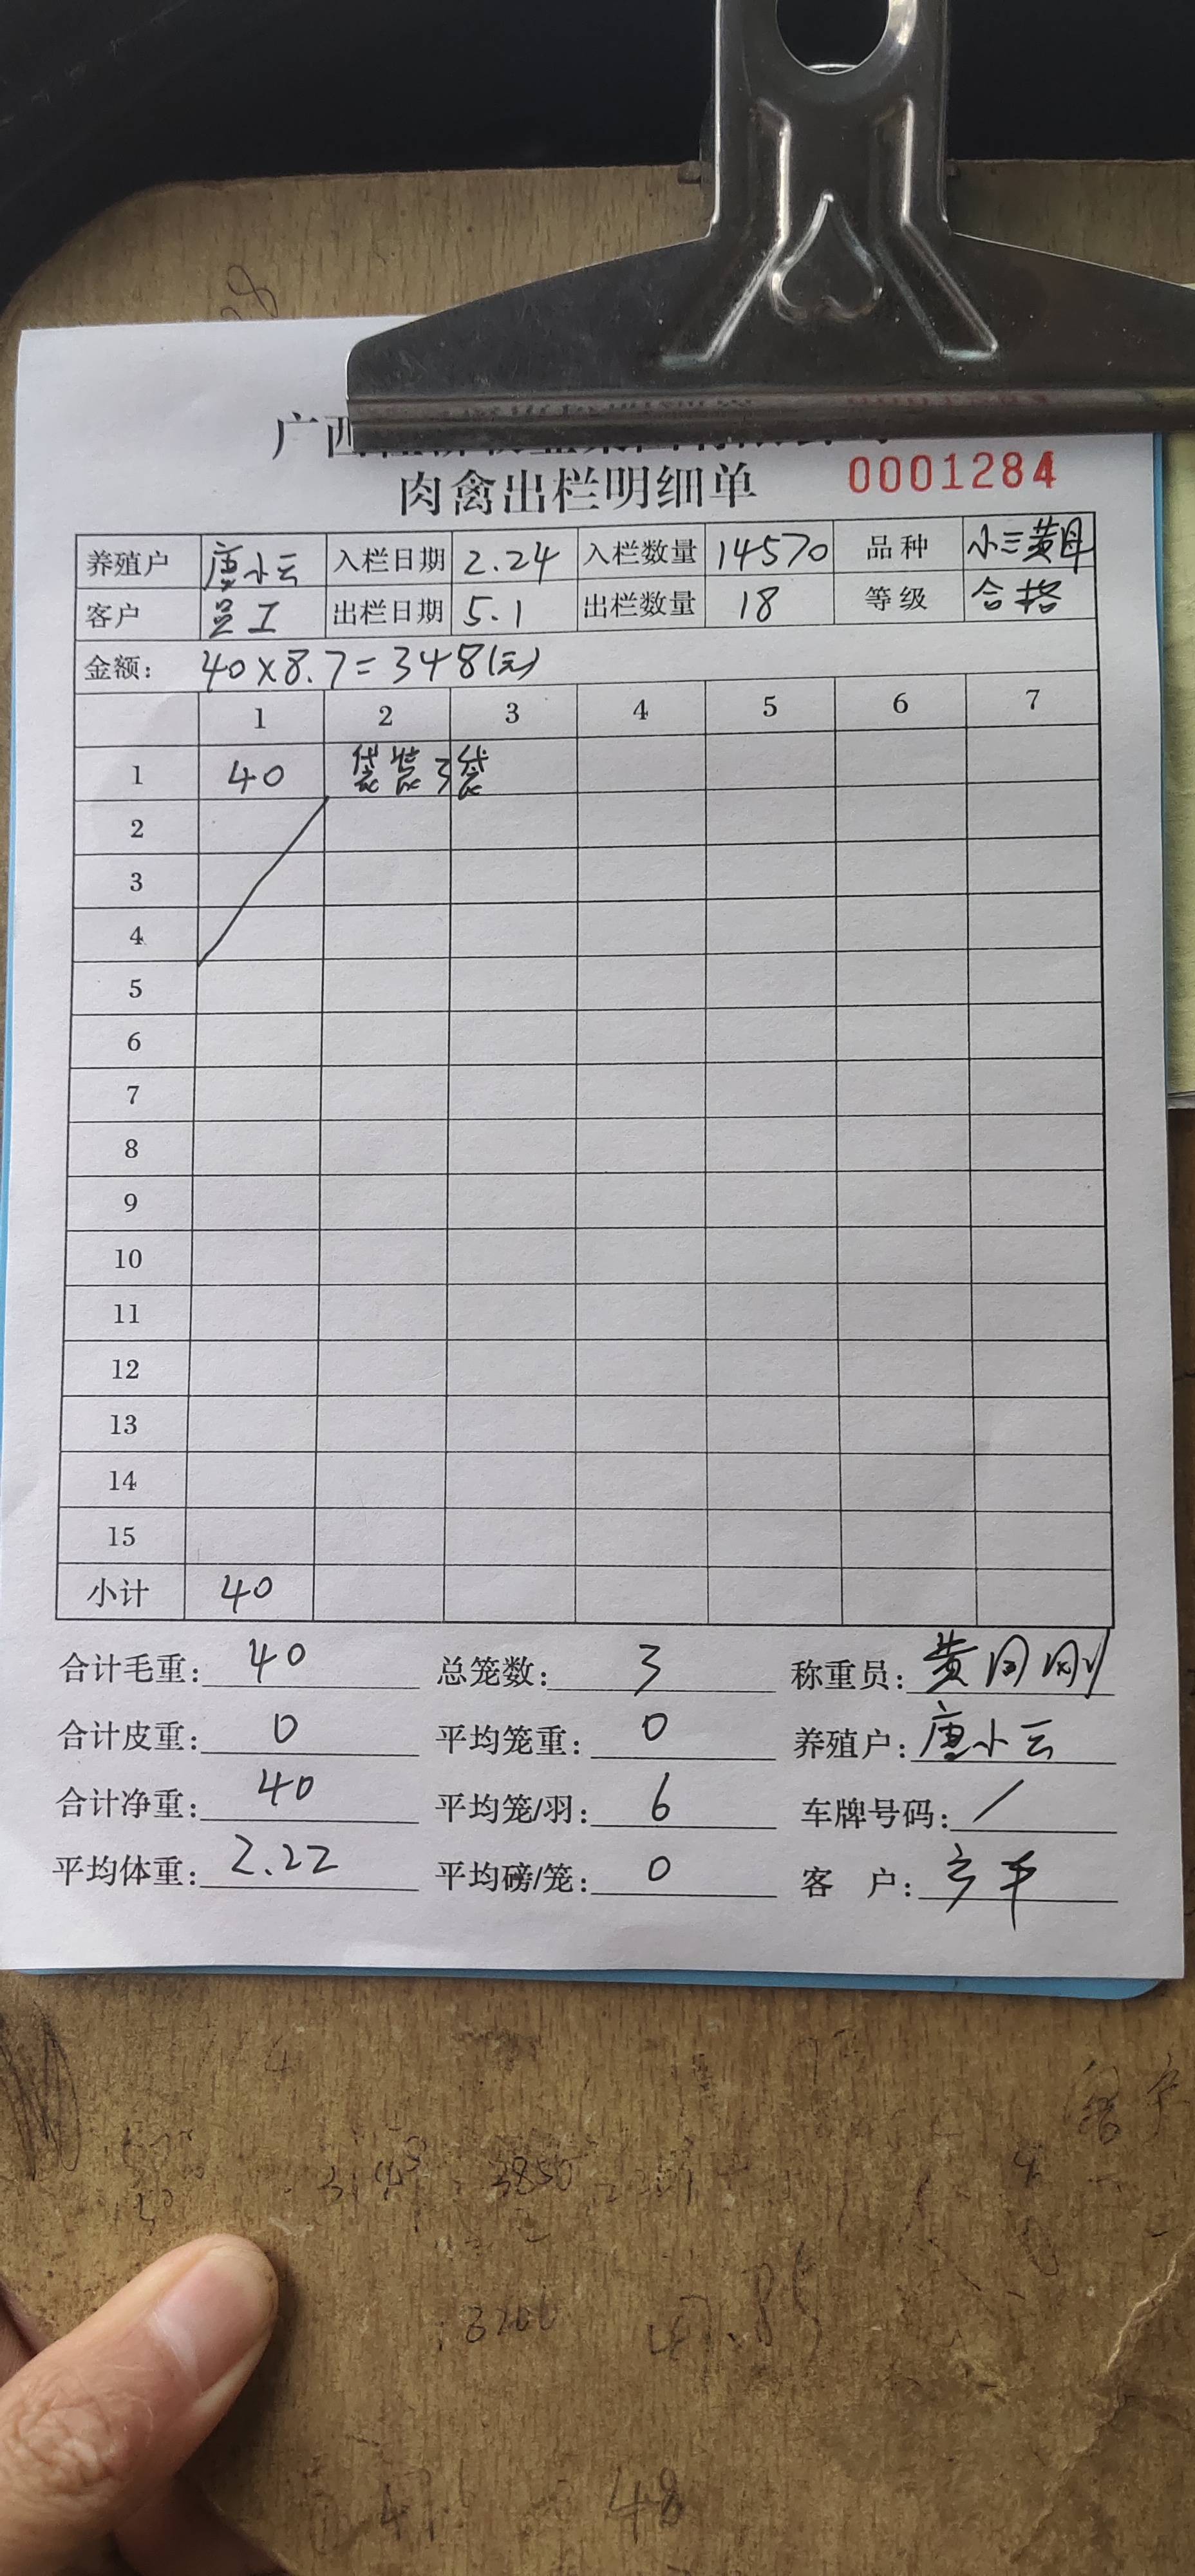 广西
肉禽出栏明细单 0001284
养殖户 唐小云 入栏日期 2.24 入栏数量 14570 品种 小三黄母
客户 员工 出栏日期 5.1 出栏数量 18 等级 合格
金额: 40×8.7=348(元)
1 2 3 4 5 6 7
1 40 袋装3袋
2
3
4
5
6
7
8
9
10
11
12
13
14
15
小计 40
合计毛重: 40 总笼数: 3 称重员: 黄同刚
合计皮重: 0 平均笼重: 0 养殖户: 唐小云
合计净重: 40 平均笼/羽: 6 车牌号码: /
平均体重: 2.22 平均磅/笼: 0 客 户:
客户
3850
3200
47.85
48